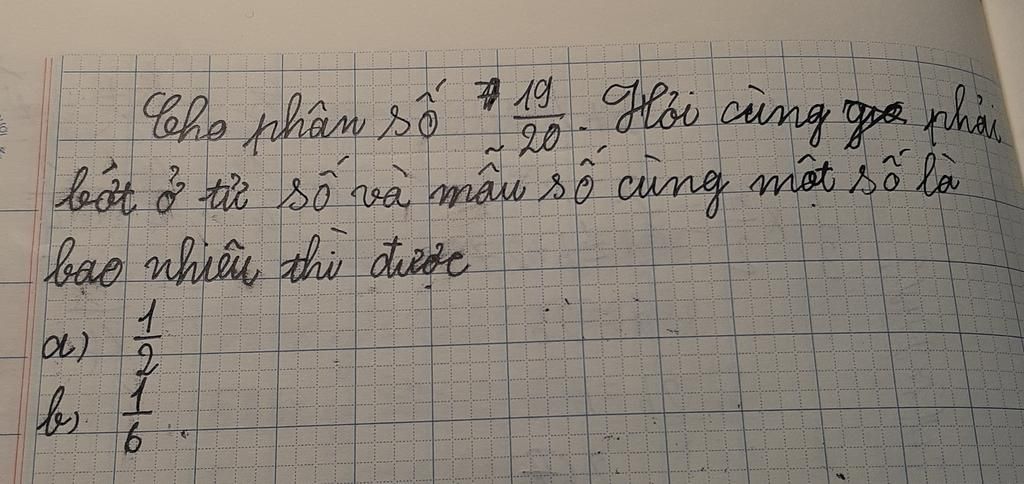 Cho phân số 19/20. Hỏi cùng phải
bớt ở tử số và mẫu số cùng một số là
bao nhiêu thì được
a) 1/2
b) 1/6